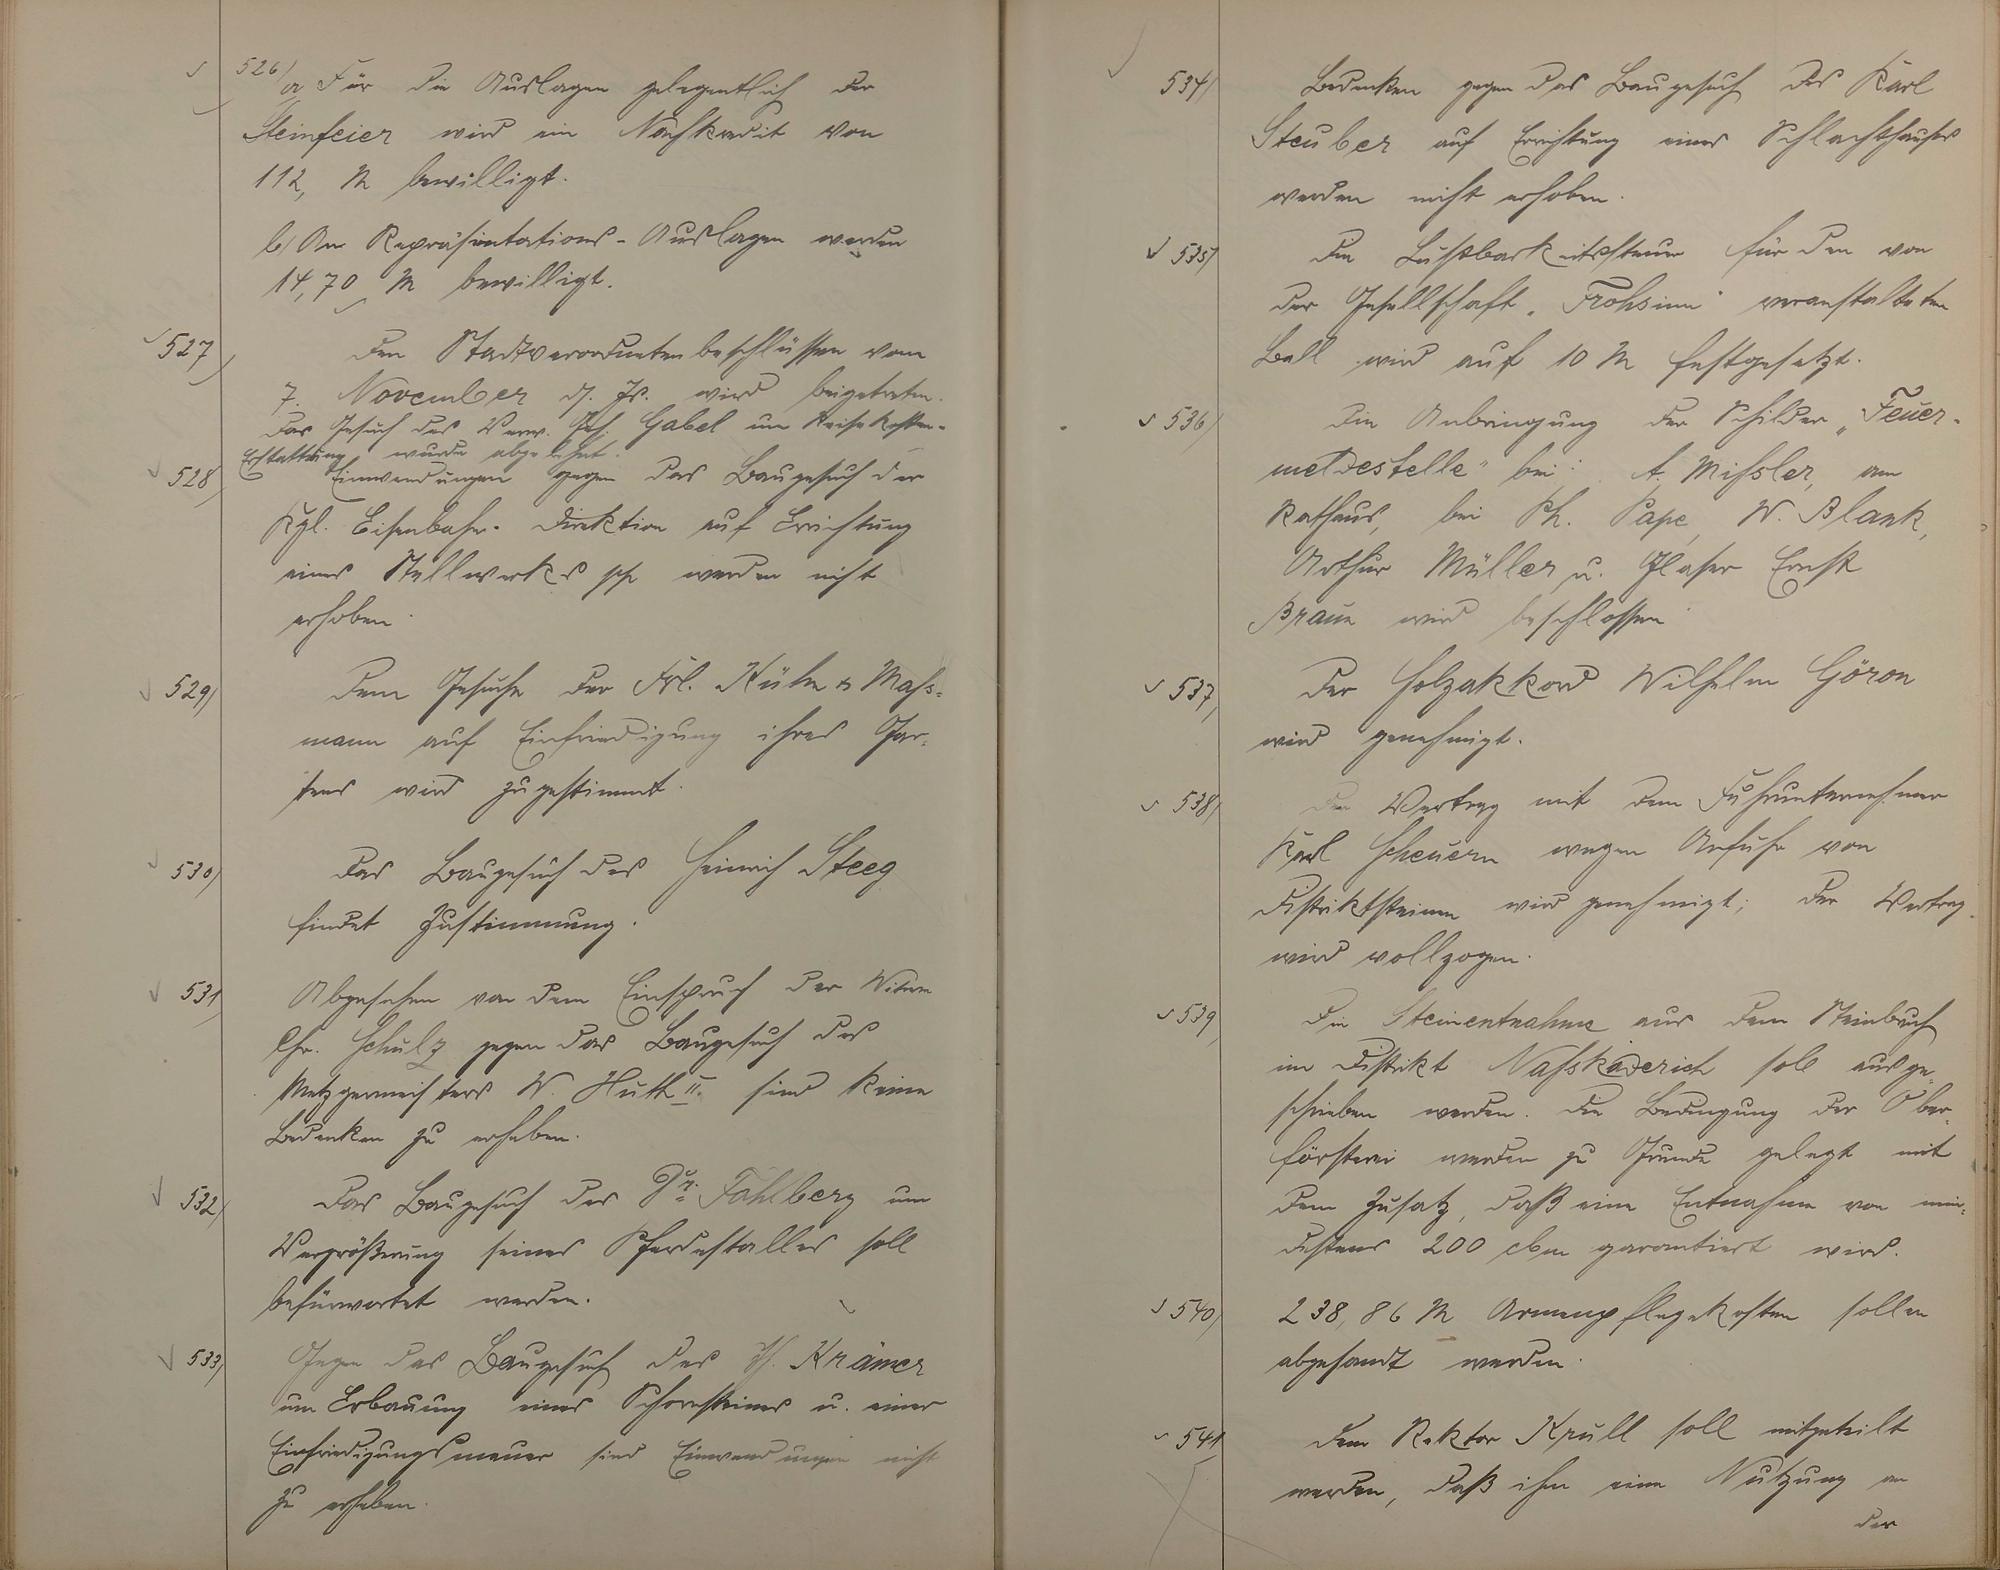 526/ a Für die Auslagen gelegentlich der
Steinfeier wird ein Nachkredit von
112, M bewilligt.
b/ An Repräsentations-Auslagen werden
14,70 M bewilligt.
527/ Den Stadtverordnetenbeschlüssen vom
7. November d. Js. wird beigetreten.
Das Gesuch des Verw. Geh. Gabel um Reisekosten-
Erstattung wurde abgelehnt.
528/ Einwendungen gegen das Baugesuch der
Kgl. Eisenbahn-Direktion auf Errichtung
eines Stellwerks pp werden nicht
erhoben.
529/ Dem Gesuche der Frl. Kühn & Mass-
mann auf Einfriedigung ihres Gar-
tens wird zugestimmt.
530/ Das Baugesuch des Heinrich Steeg
findet Zustimmung.
531/ Abgesehen von dem Einspruch der Witwe
Chr. Schulz gegen das Baugesuch des
Metzgermeisters W. Huth II. sind keine
Bedenken zu erheben.
532/ Das Baugesuch des Dr. Fahlberg um
Vergrößerung seines Pferdestalles soll
befürwortet werden.
533/ Gegen das Baugesuch des Krämer
um Erbauung eines Schornsteines u. einer
Einfriedigungsmauer sind Einwendungen nicht
zu erheben.
534/ Bedenken gegen das Baugesuch des Karl
Steuber auf Errichtung eines Schlachthauses
werden nicht erhoben.
535/ Die Lustbarkeitssteuer für den von
der Gesellschaft „Frohsinn" veranstalteten
Ball wird auf 10 M festgesetzt.
536/ Die Anbringung der Schilder „Feuer-
meldestelle" bei: A. Missler, am
Rathaus, bei Ph. Pape, W. Blank,
Arthur Müller u. Glaser Ernst
Braun wird beschlossen.
537/ Der Holzakkord Wilhelm Göron
wird genehmigt.
538/ Der Vertrag mit dem Fuhrunternehmer
Karl Scheuern wegen Anfuhr von
Distriktsteinen wird genehmigt; der Vertrag
wird vollzogen.
539/ Die Steinentnahme aus dem Steinbruch
im Distrikt Nasskäderich soll ausge-
schrieben werden. Die Bedingung der Ober-
försterei werden zu Grunde gelegt mit
dem Zusatz, daß eine Entnahme von min-
destens 200 cbm garantiert wird.
540/ 238,86 M Armenpflegekosten sollen
abgesandt werden.
541/ Dem Rektor Krull soll mitgeteilt
werden, daß ihm eine Nutzung an
der